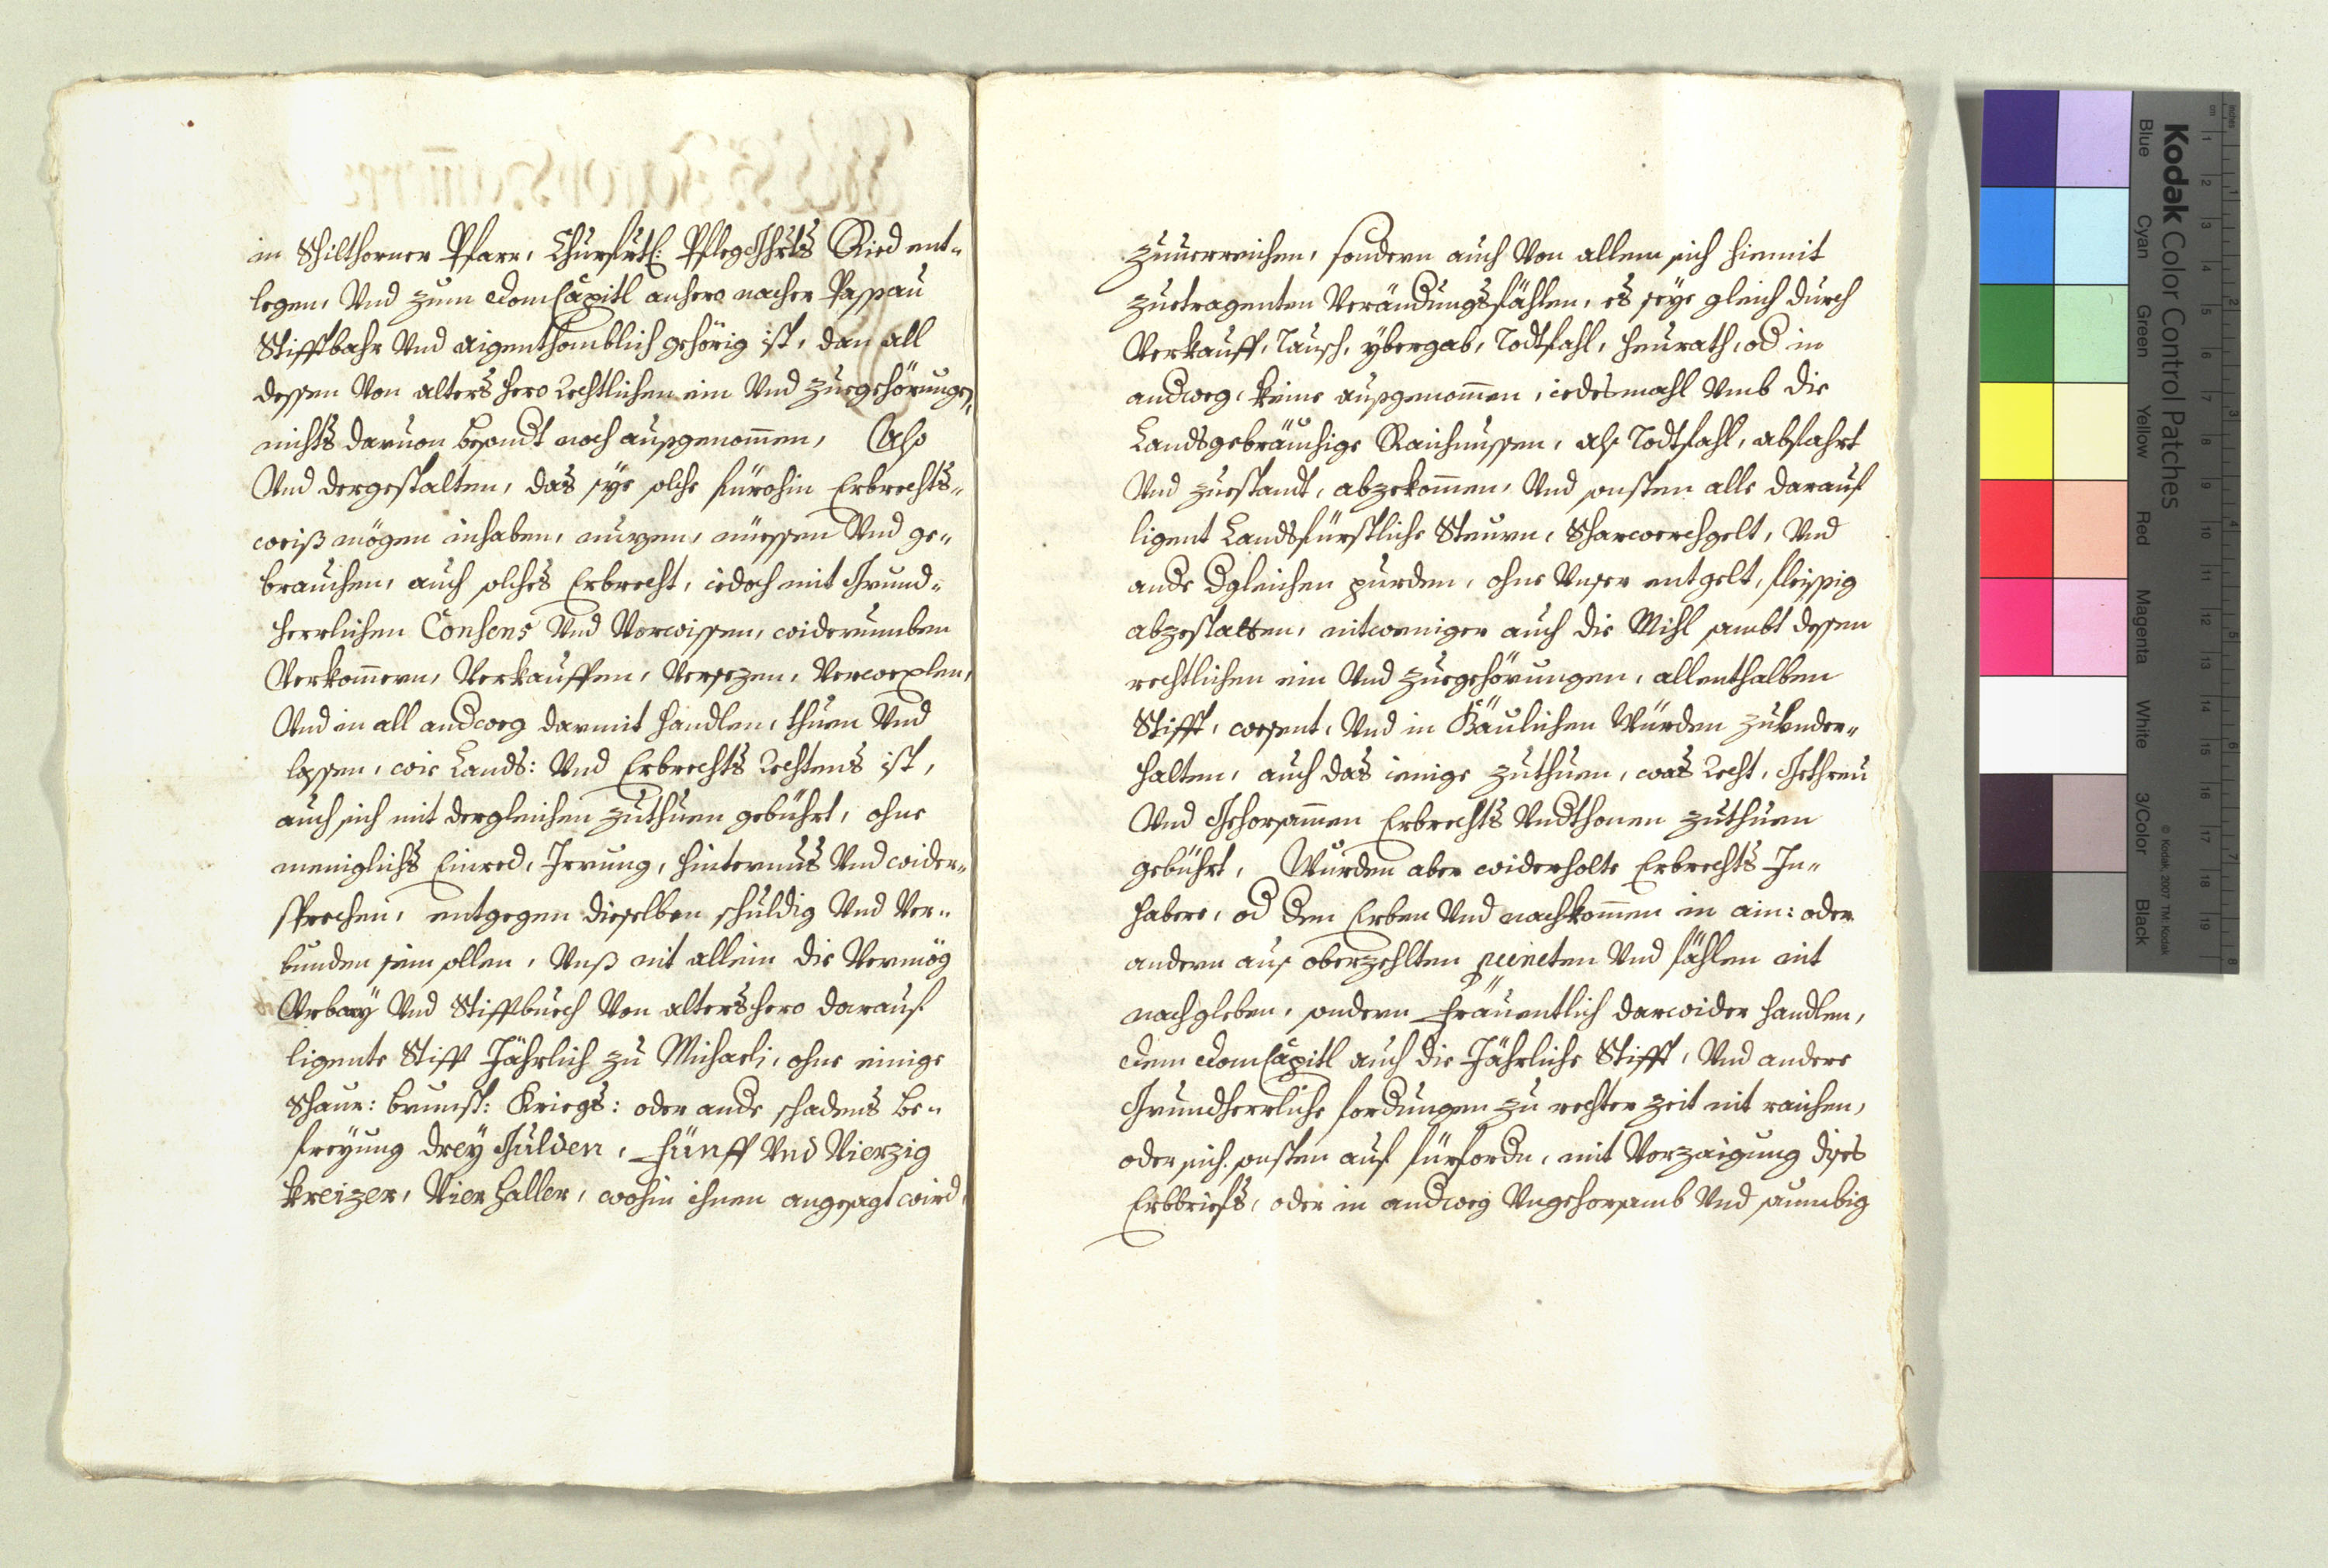 in Schilthorner Pfarr, Churfrtl: PflegGhrts Ried ent-
legen, Vnd zum DomCapitl anhero nacher Passau
Stifftbahr Vnd aigenthomblich gehörig ist, dan all
dessen Von alters hero Rechtlichen ein Vnd zuegehörungen,
nichts daruon besondt noch außgenom̄en, Also
Vnd dergestalten, das sye solche fürohin Erbrechts-
weiß mögen inhaben, nuzen, niessen Vnd ge-
brauchen, auch solches Erbrecht, iedoch mit Grund-
herrlichen Consens Vnd Vorwissen, widerumben
Verkom̄ern, Verkauffen, Versezen, Verwexlen,
Vnd in all andweg darmit handlen, thuen Vnd
lassen, wie Lands: Vnd Erbrechts Rechtens ist,
auch sich mit dergleichen zuthuen gebührt, ohne
meniglichs Einred, Irrung, hinternus Vnd wider-
sprechen, entgegen dieselben schuldig Vnd Ver-
bunden sein sollen, Vnß nit allein die Vermög
Vrbary Vnd Stifftbuech Von altershero darauf
ligente Stifft Jährlich zu Michaeli, ohne einige
Schaur: brunst: Kriegs: oder ande schadens be-
freyung drey Gulden, Fünff Vnd Vierzig
kreizer, Vier haller, wohin ihnen angesagt wird,
zuuerreichen, sondern auch Von allem sich hiemit
zuetragenten Verändungsfählen, es seye gleich durch
Verkauff, Tausch, ybergab, Todtfahl, heurath, od in
andweg, keine außgenom̄en, iedesmahl Vmb die
Landsgebräuchige Raichnussen, als Todtfahl, abfahrt
Vnd zuestandt, abzekom̄en, Vnd sonsten alle darauf
ligent Landsfürstliche Steurn, Scharwerchgelt, Vnd
ande dgleichen purden, ohne Vnser entgelt, fleissig
abzestatten, nitweniger auch die Mihl sambt dessen
rechtlichen ein Vnd zuegehörungen, allenthalben
Stifft, wesent, Vnd in Bäulichen Würden zuVnder-
halten, auch das ienige zuthuen, was Recht, Gethreu
Vnd Gehorsam̄en Erbrechts Vndthonen zuthuen
gebührt, Wurden aber widerholte Erbrechts In-
habere, od den Erben Vnd nachkom̄en in ain: oder
andern aus oberzehlten puncten Vnd fählen nit
nachgleben, sondern Fräuentlich darwider handlen,
dem DomCapitl auch die Jährliche Stifft, Vnd andere
Grundherrliche fordungen zu rechter zeit nit raichen,
oder sich sonsten auf fürfordn, mit Vorzaigung dises
Erbbriefs, oder in andweg Vngehorsamb Vnd saumbig
Kodak Color Control Patches
Blue Cyan Green Yellow Red Magenta White 3/Color Black
© Kodak, 2007 TM: Kodak